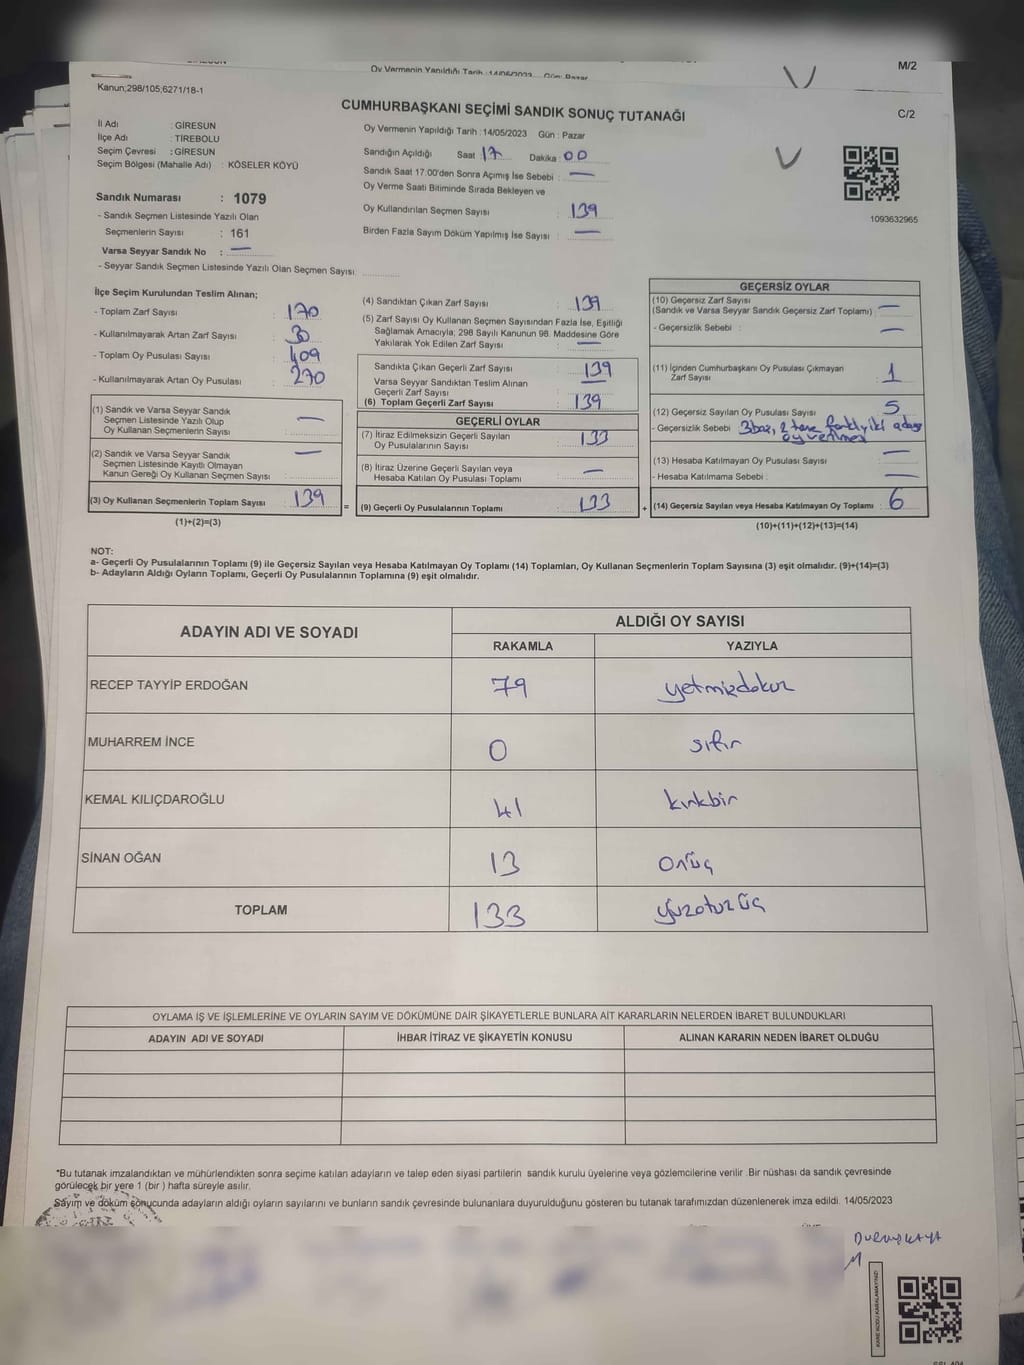 Oy Vermenin Yapıldığı Tarih : 14/05/2023 Gün: Pazar
M/2
Kanun;298/105;6271/18-1
CUMHURBAŞKANI SEÇİMİ SANDIK SONUÇ TUTANAĞI
C/2
İl Adı : GİRESUN
İlçe Adı : TİREBOLU
Seçim Çevresi : GİRESUN
Seçim Bölgesi (Mahalle Adı) : KÖSELER KÖYÜ
Sandık Numarası : 1079
- Sandık Seçmen Listesinde Yazılı Olan
Seçmenlerin Sayısı : 161
Varsa Seyyar Sandık No : —
- Seyyar Sandık Seçmen Listesinde Yazılı Olan Seçmen Sayısı
Oy Vermenin Yapıldığı Tarih : 14/05/2023 Gün : Pazar
Sandığın Açıldığı Saat 17 Dakika : 00
Sandık Saat 17.00'den Sonra Açımış İse Sebebi : —
Oy Verme Saati Bitiminde Sırada Bekleyen ve
Oy Kullandırılan Seçmen Sayısı : 139
Birden Fazla Sayım Döküm Yapılmış İse Sayısı : —
1093632965
İlçe Seçim Kurulundan Teslim Alınan;
- Toplam Zarf Sayısı : 170
- Kullanılmayarak Artan Zarf Sayısı : 30
- Toplam Oy Pusulası Sayısı : 409
- Kullanılmayarak Artan Oy Pusulası : 270
(1) Sandık ve Varsa Seyyar Sandık
Seçmen Listesinde Yazılı Olup
Oy Kullanan Seçmenlerin Sayısı : —
(2) Sandık ve Varsa Seyyar Sandık
Seçmen Listesinde Kayıtlı Olmayan
Kanun Gereği Oy Kullanan Seçmen Sayısı : —
(3) Oy Kullanan Seçmenlerin Toplam Sayısı : 139
(1)+(2)=(3)
=
(4) Sandıktan Çıkan Zarf Sayısı : 139
(5) Zarf Sayısı Oy Kullanan Seçmen Sayısından Fazla İse, Eşitliği
Sağlamak Amacıyla, 298 Sayılı Kanunun 98. Maddesine Göre
Yakılarak Yok Edilen Zarf Sayısı : —
Sandıkta Çıkan Geçerli Zarf Sayısı : 139
Varsa Seyyar Sandıktan Teslim Alınan
Geçerli Zarf Sayısı : —
(6) Toplam Geçerli Zarf Sayısı : 139
GEÇERLİ OYLAR
(7) İtiraz Edilmeksizin Geçerli Sayılan
Oy Pusulasının Sayısı : 133
(8) İtiraz Üzerine Geçerli Sayılan veya
Hesaba Katılan Oy Pusulası Toplamı : —
(9) Geçerli Oy Pusulalarının Toplamı : 133
+
GEÇERSİZ OYLAR
(10) Geçersiz Zarf Sayısı
(Sandık ve Varsa Seyyar Sandık Geçersiz Zarf Toplamı) : —
- Geçersizlik Sebebi : —
(11) İçinden Cumhurbaşkanı Oy Pusulası Çıkmayan
Zarf Sayısı : 1
(12) Geçersiz Sayılan Oy Pusulası Sayısı : 5
- Geçersizlik Sebebi : 3 boş, 2 tane farklı iki adaya
oy verilmesi
(13) Hesaba Katılmayan Oy Pusulası Sayısı : —
- Hesaba Katılmama Sebebi : —
(14) Geçersiz Sayılan veya Hesaba Katılmayan Oy Toplamı : 6
(10)+(11)+(12)+(13)=(14)
NOT:
a- Geçerli Oy Pusulalarının Toplamı (9) ile Geçersiz Sayılan veya Hesaba Katılmayan Oy Toplamı (14) Toplamları, Oy Kullanan Seçmenlerin Toplam Sayısına (3) eşit olmalıdır. (9)+(14)=(3)
b- Adayların Aldığı Oyların Toplamı, Geçerli Oy Pusulalarının Toplamına (9) eşit olmalıdır.
ADAYIN ADI VE SOYADI
ALDIĞI OY SAYISI
RAKAMLA YAZIYLA
RECEP TAYYİP ERDOĞAN 79 yetmişdokuz
MUHARREM İNCE 0 sıfır
KEMAL KILIÇDAROĞLU 41 kırkbir
SİNAN OĞAN 13 onüç
TOPLAM 133 yüzotuzüç
OYLAMA İŞ VE İŞLEMLERİNE VE OYLARIN SAYIM VE DÖKÜMÜNE DAİR ŞİKAYETLERLE BUNLARA AİT KARARLARIN NELERDEN İBARET BULUNDUKLARI
ADAYIN ADI VE SOYADI İHBAR İTİRAZ VE ŞİKAYETİN KONUSU ALINAN KARARIN NEDEN İBARET OLDUĞU
*Bu tutanak imzalandıktan ve mühürlendikten sonra seçime katılan adayların ve talep eden siyasi partilerin sandık kurulu üyelerine veya gözlemcilerine verilir. Bir nüshası da sandık çevresinde
görülecek bir yere 1 (bir ) hafta süreyle asılır.
Sayım ve döküm sonucunda adayların aldığı oyların sayılarını ve bunların sandık çevresinde bulunanlara duyurulduğunu gösteren bu tutanak tarafımızdan düzenlenerek imza edildi. 14/05/2023
KARE KODU KARALAMAYINIZ!